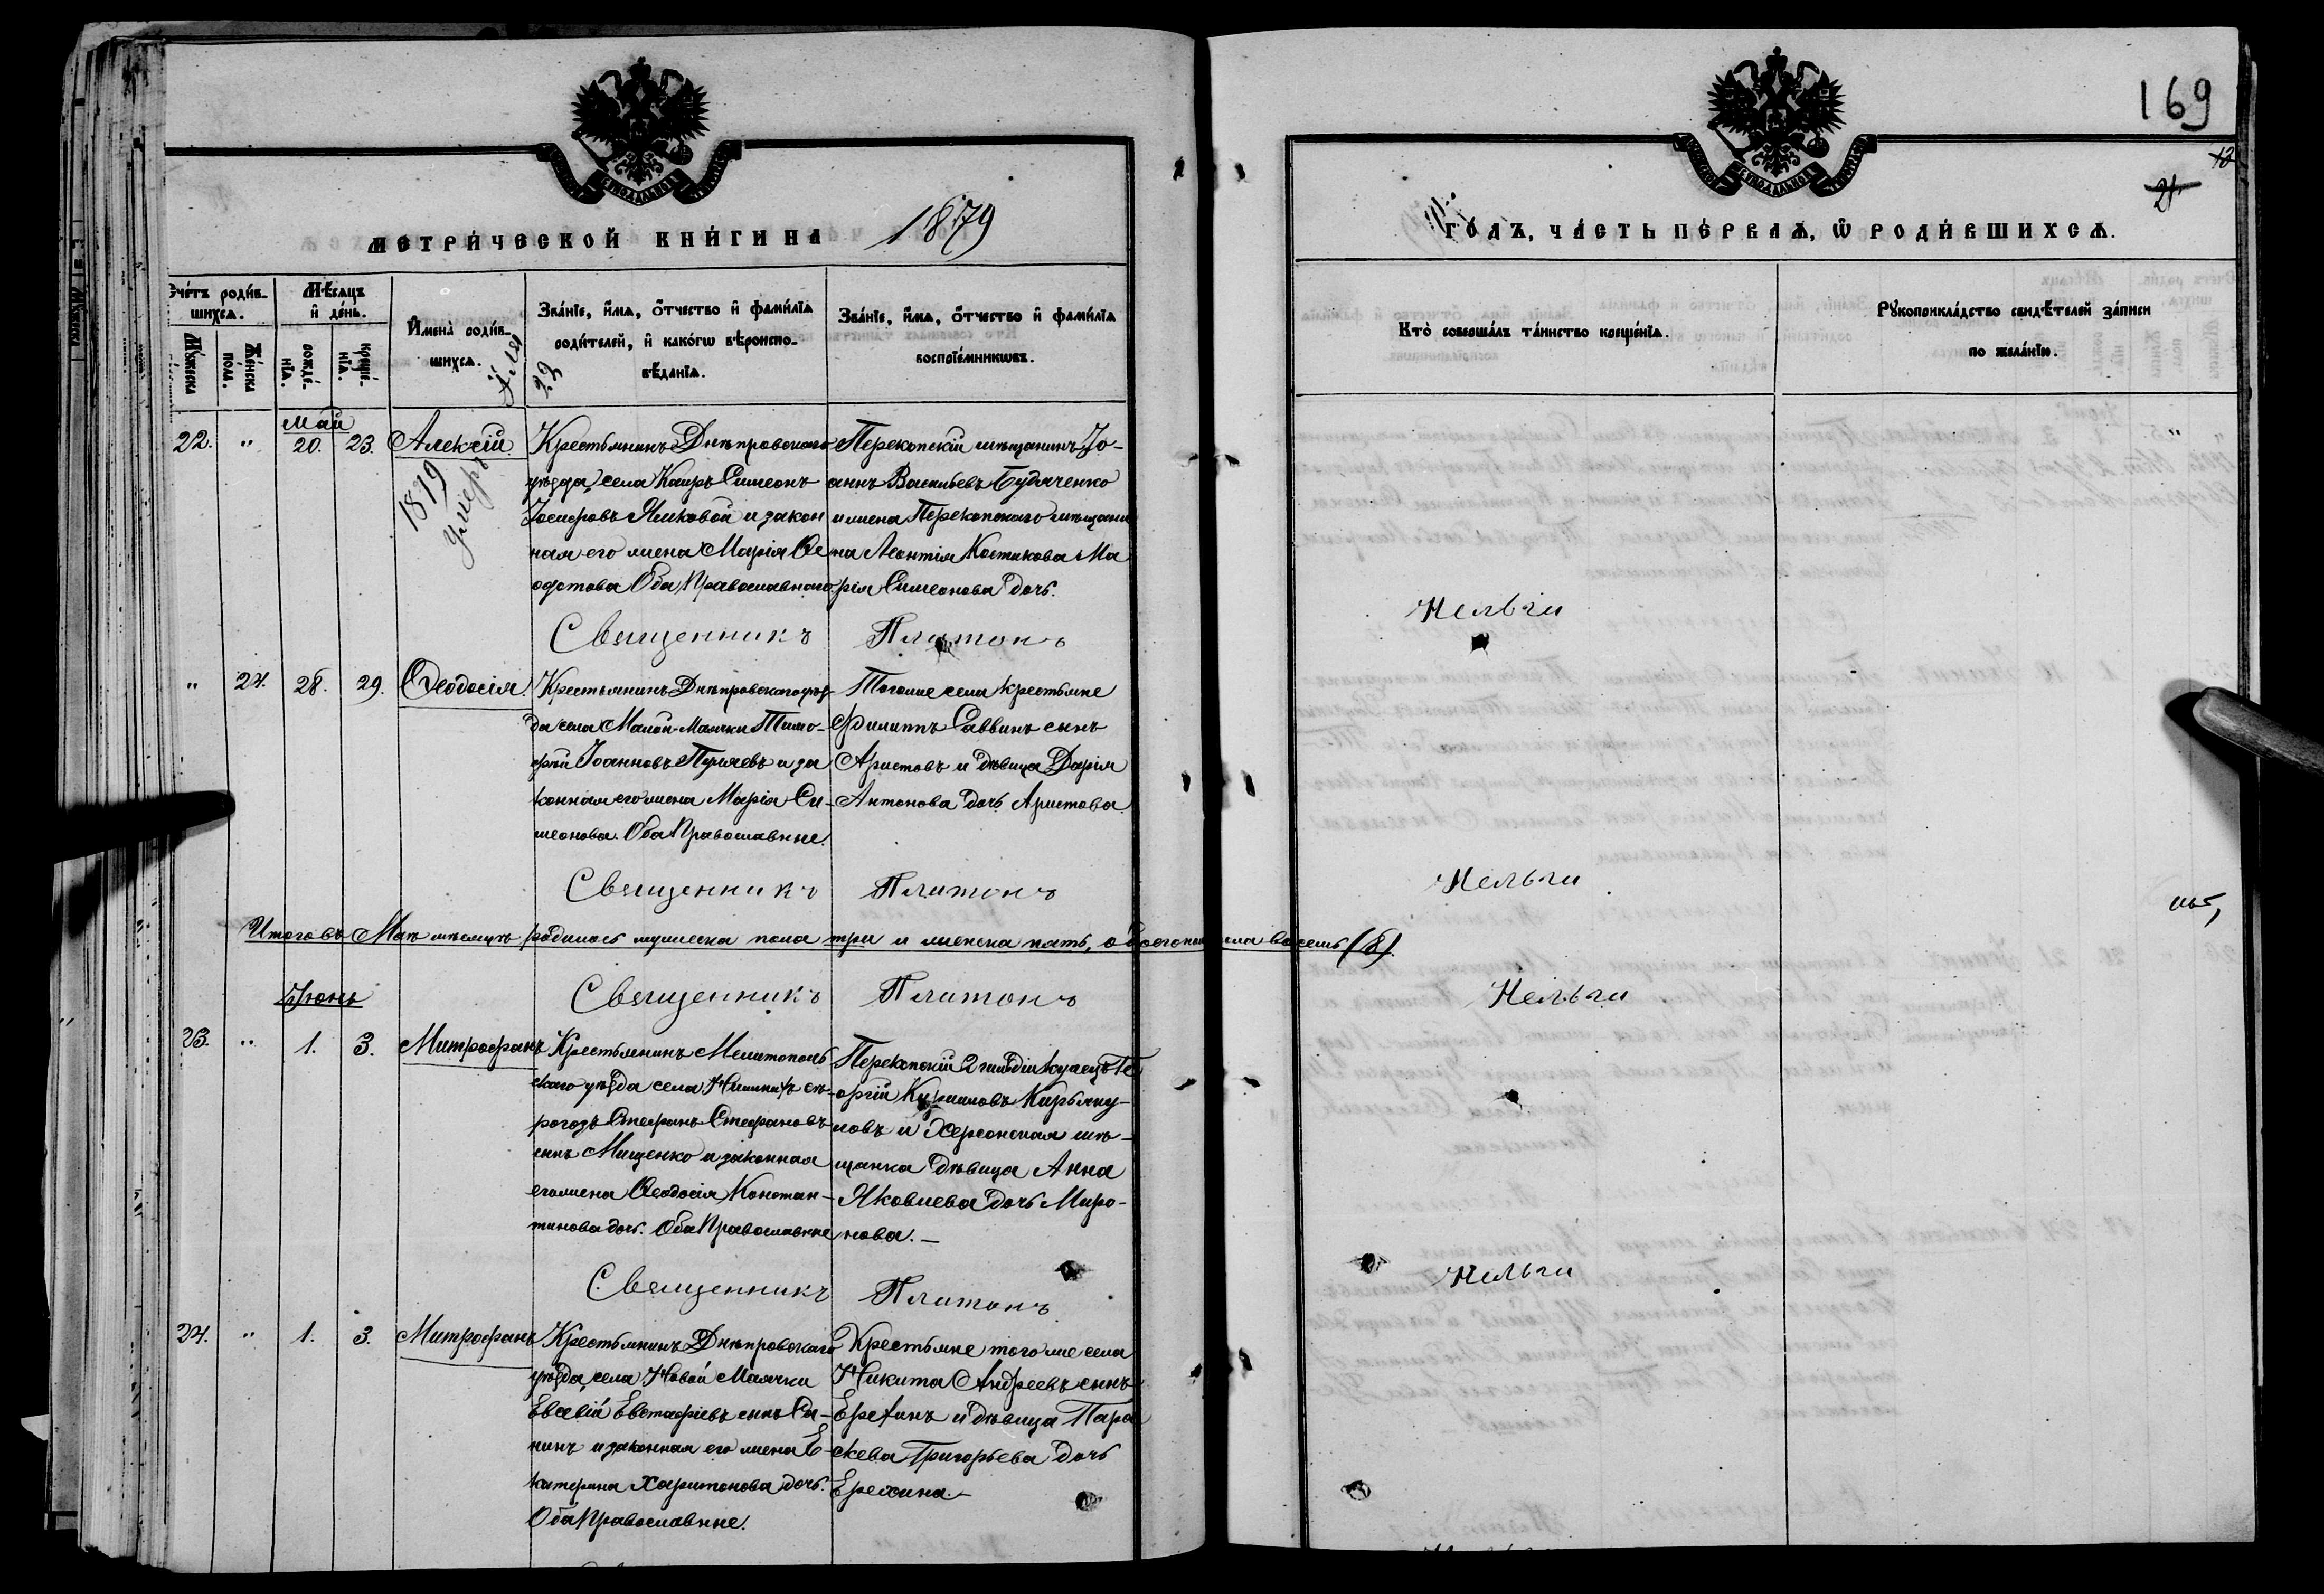 169
13
21
МЕТРИ́ЧЕСКОЙ КНИ́ГИ НА 1879
ГО́ДЪ, ЧА́СТЬ ПЕ́РВАѦ, Ѿ РОДИ́ВШИХСѦ.
Сче́тъ роди́в-
шихсѧ.
Мꙋ́жеска
Же́нска
пола.
Мѣ́сяцъ
и҆ де́нь.
рожде́-
нїѧ.
креще́-
нїѧ.
И҆мена̀ роди́в-
шихсѧ.
Зва́нїе, и҆́мѧ, ѻ҆́тчество и҆ фами́лїѧ
роди́телей, и҆ како́гѡ вѣроиспо-
вѣ́данїѧ.
Зва́нїе, и҆́мѧ, ѻ҆́тчество и҆ фами́лїѧ
воспрїе́мникѡвъ.
Кто̀ соверша́лъ та́инство креще́нїѧ.
Рꙋкоприкла́дство свидѣ́телей за́писи
по жела́нїю.
Май
22. " 20. 23. Алексій
1879
умеръ
22
Крестьянинъ Днѣпровскаго
уѣзда, села Каиръ Симеонъ
Іосифовъ Яликовой и закон
ная его жена Марія Ѳе
одотова Оба Православнаго
Перекопскій мѣщанинъ Іо-
аннъ Васильевъ Будяченко
и жена Перекопскаго мѣщани
на Леонтія Костикова Ма
рія Симеонова дочь.
Священникъ Платонъ Нельги
" 24. 28. 29. Ѳеодосія.
Крестьянинъ Днѣпровскаго уѣз-
да села Малой-Маячки Тимо-
фей Іоанновъ Пугачевъ и за
конная его жена Марія Си-
меонова. Оба Православные.
Тогоже села крестьяне
Филиппъ Саввинъ сынъ
Аристовъ и дѣвица Дарія
Антонова дочь Аристова.
Священникъ Платонъ Нельги
Итого въ Маѣ мѣсяцѣ родилось мужеска пола три и женска пять, обоего пола восемь (8).
Священникъ Платонъ Нельги
Іюнь
23. " 1. 3. Митрофанъ
Крестьянинъ Мелитополь
скаго уѣзда села Нижнихъ сѣ-
рогозъ Стефанъ Стефановъ
сынъ Мищенко и законная
его жена Ѳеодосія Констан-
тинова дочь. Оба Православные
Перекопскій 2 гильдіи купецъ Ге
оргій Кирилловъ Кирьяку-
ловъ и Херсонская мѣ-
щанка дѣвица Анна
Яковлева дочь Миро-
нова.—
Священникъ Платонъ Нельги
24. " 1. 3. Митрофанъ
Крестьянинъ Днѣпровскаго
уѣзда, села Новой Маячки
Евсевій Евстафіевъ сынъ Си-
нинъ и законная его жена Е-
катерина Харитонова дочь.
Оба Православные.
Крестьяне того же села
Никита Андреевъ сынъ
Ерехинъ и дѣвица Пара
скева Григорьева дочь
Ерехина.—